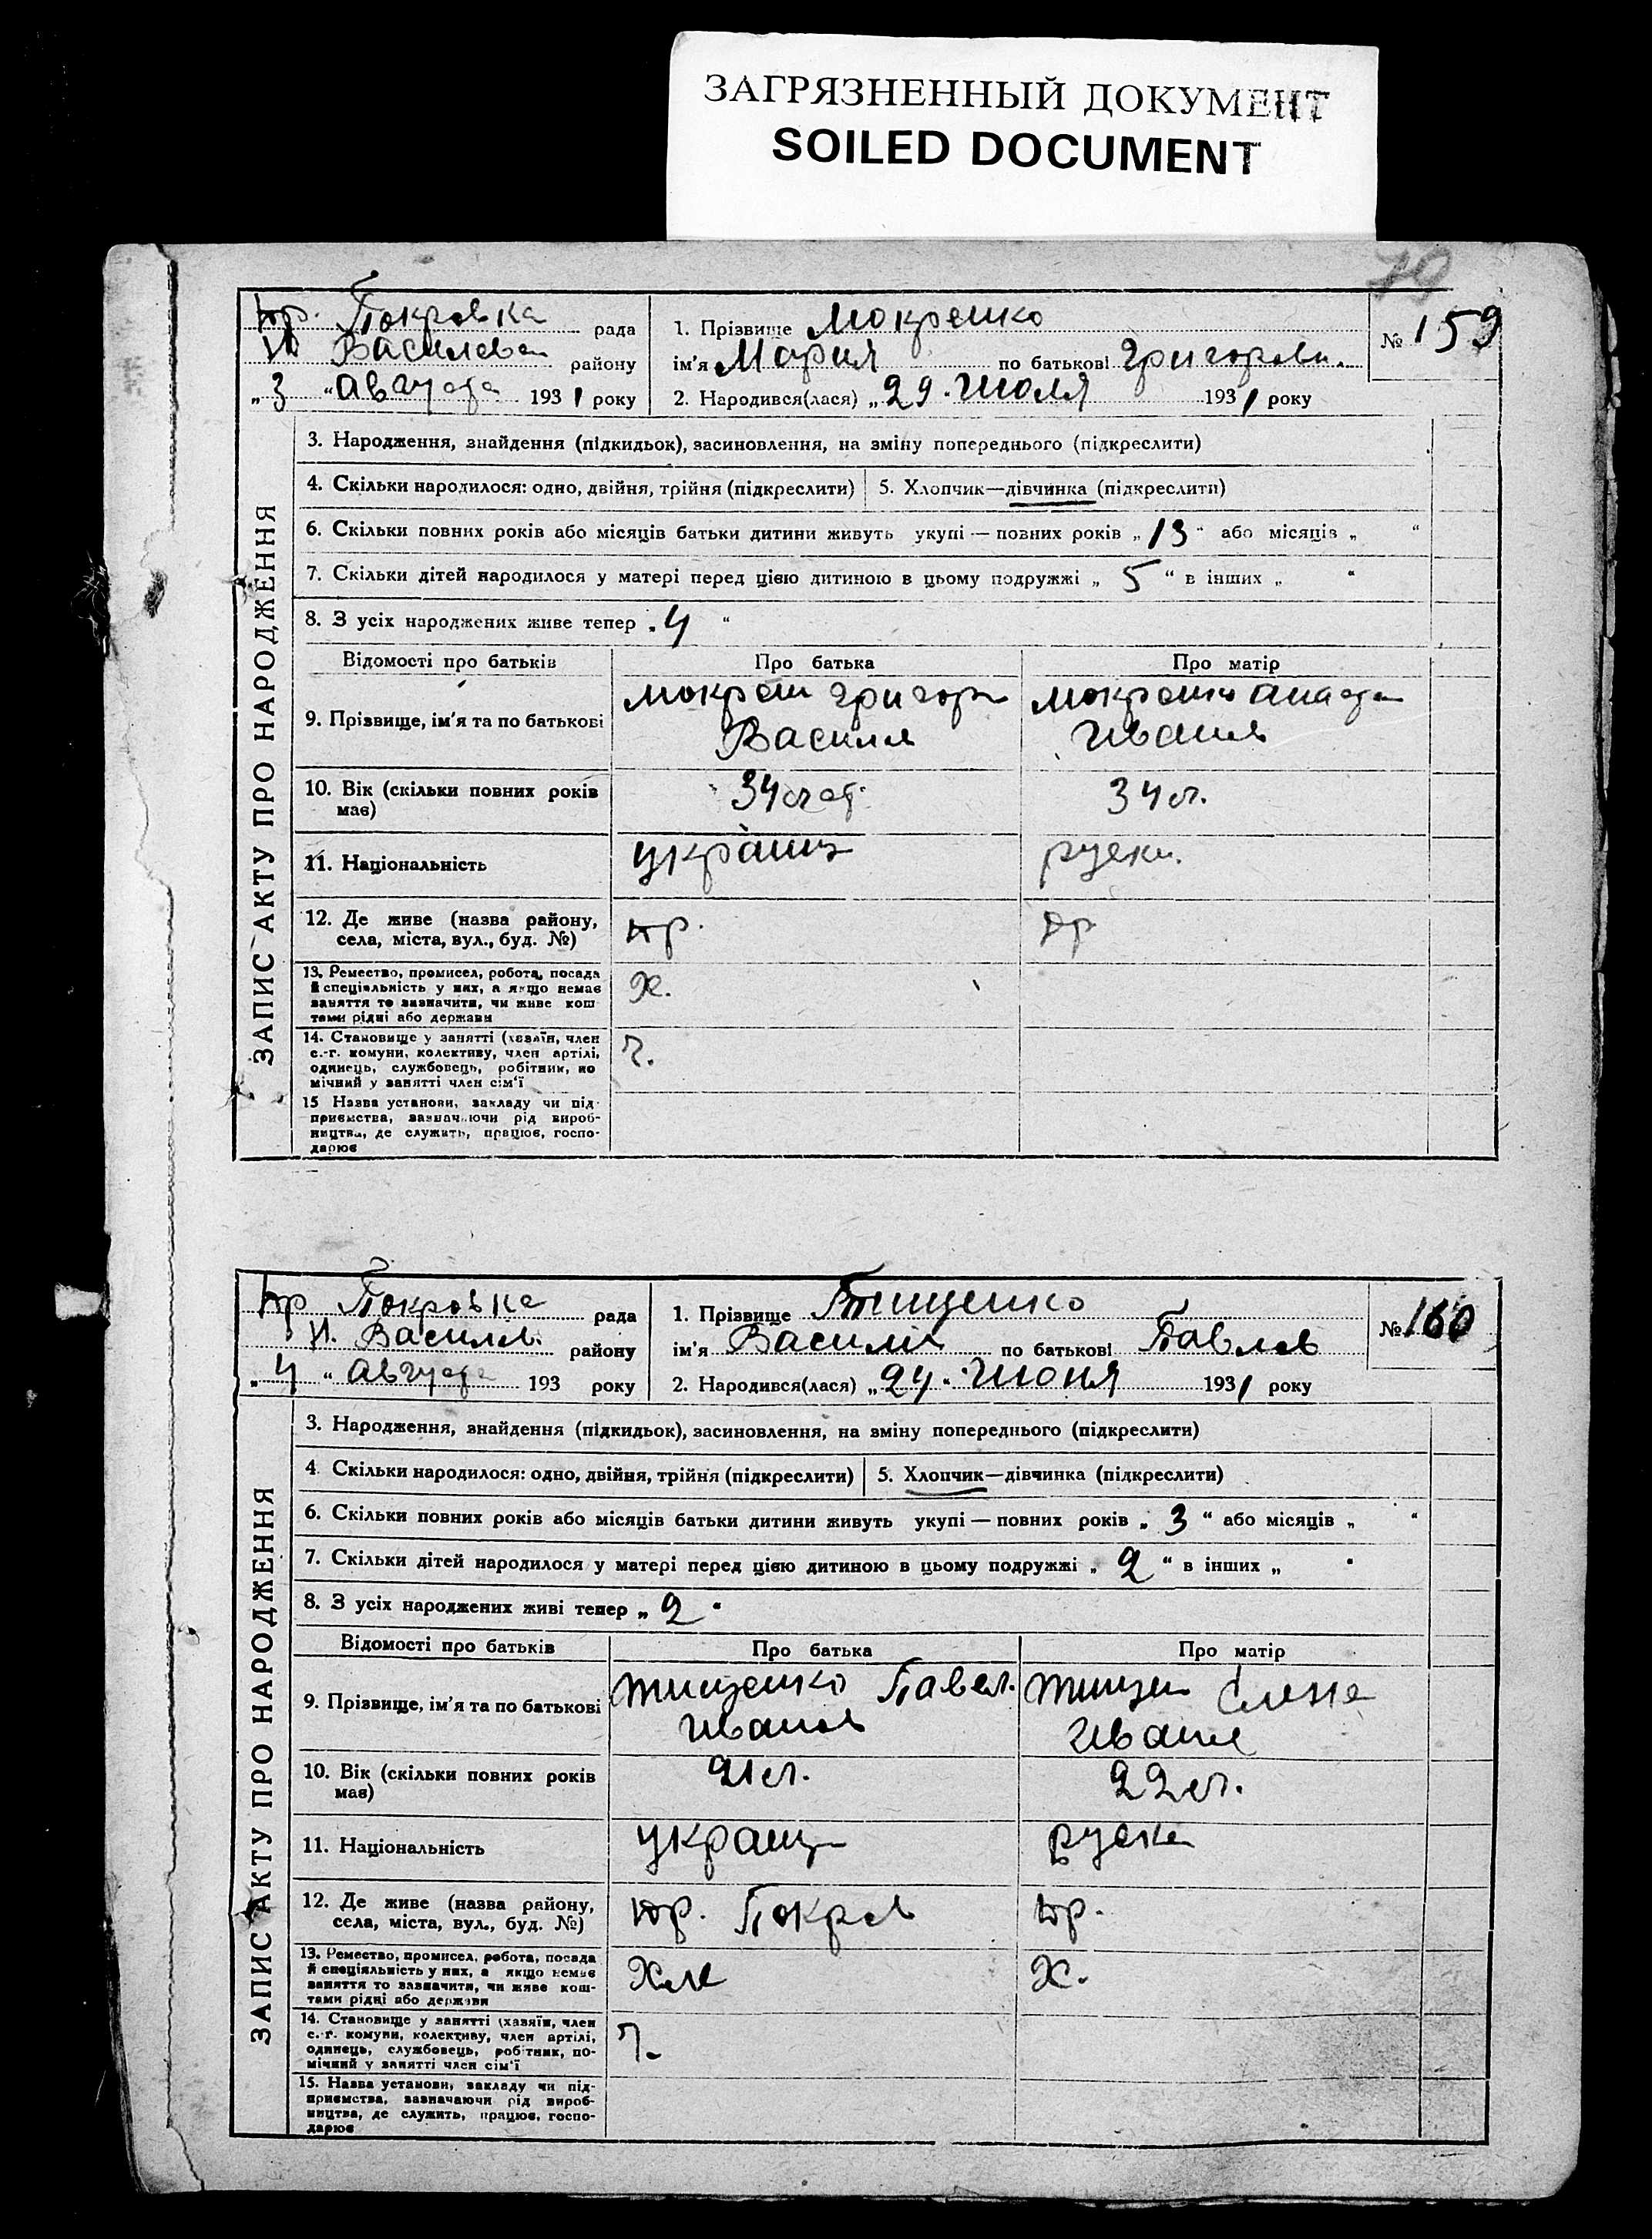 ЗАГРЯЗНЕННЫЙ ДОКУМЕНТ
SOILED DOCUMENT
79
Кр. Покровка рада
Н Василевк району
„3 “ Августа 1931 року
1. Прізвище Мокренко
ім'я Мария по батькові Григоровн.
2. Народився(лася) „29. Июля 1931 року
№ 159
ЗАПИС АКТУ ПРО НАРОДЖЕННЯ
3. Народження, знайдення (підкидьок), засиновлення, на зміну попереднього (підкреслити)
4. Скільки народилося: одно, двійня, трійня (підкреслити) 5. Хлопчик—дівчинка (підкреслити)
6. Скільки повних років або місяців батьки дитини живуть укупі — повних років „ 13 “ або місяців „ “
7. Скільки дітей народилося у матері перед цією дитиною в цьому подружжі „ 5 “ в інших „ “
8. З усіх народжених живе тепер „ 4 “
Відомості про батьків Про батька Про матір
9. Прізвище, ім'я та по батькові
Мокрен Григор
Васил
Мокренко
Иван
10. Вік (скільки повних років має)
34 лет. 34 л.
11. Національність украинц руски.
12. Де живе (назва району,
села, міста, вул., буд. №)
Кр. Кр
13. Ремество, промисел, робота, посада
й спеціяльність у них, а якщо немає
заняття то зазначити, чи живе кош-
тами рідні або держави
Х.
14. Становище у занятті (хазяїн, член
с.-г. комуни, колективу, член артілі,
одинець, службовець, робітник, по
мічний у занятті член сім'ї
Ч.
15 Назва установи, закладу чи під-
приємства, зазначаючи рід вироб-
ництва, де служить, працює, госпо-
дарює
Кр Покровка рада
Н. Васили. району
„ 4 “ Августа 193 року
1. Прізвище Тищенко
ім'я Васили по батькові Павлов
2. Народився(лася) „24. Июня 1931 року
№ 160
ЗАПИС АКТУ ПРО НАРОДЖЕННЯ
3. Народження, знайдення (підкидьок), засиновлення, на зміну попереднього (підкреслити)
4. Скільки народилося: одно, двійня, трійня (підкреслити) 5. Хлопчик—дівчинка (підкреслити)
6. Скільки повних років або місяців батьки дитини живуть укупі — повних років „ 3 “ або місяців „ “
7. Скільки дітей народилося у матері перед цією дитиною в цьому подружжі „ 2 “ в інших „ “
8. З усіх народжених живі тепер „ 2 “
Відомості про батьків Про батька Про матір
9. Прізвище, ім'я та по батькові
Тищенко Павел.
Иванов
Тищен Елена
Иван
10. Вік (скільки повних років має)
21 л. 22 л.
11. Національність украинц руска
12. Де живе (назва району,
села, міста, вул., буд. №)
Кр. Покров Кр.
13. Ремество, промисел, робота, посада
й спеціяльність у них, а якщо немає
заняття то зазначити, чи живе кош-
тами рідні або держави
Х.
14. Становище у занятті (хазяїн, член
с.-г. комуни, колективу, член артілі,
одинець, службовець, робітник, по-
мічний у занятті член сім'ї
Ч.
15. Назва установи, закладу чи під-
приємства, зазначаючи рід вироб-
ництва, де служить, працює, госпо-
дарює